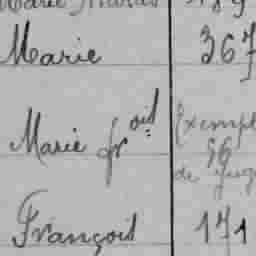 Marie 367
Marie frois Exempl
56
de Jug
François 171